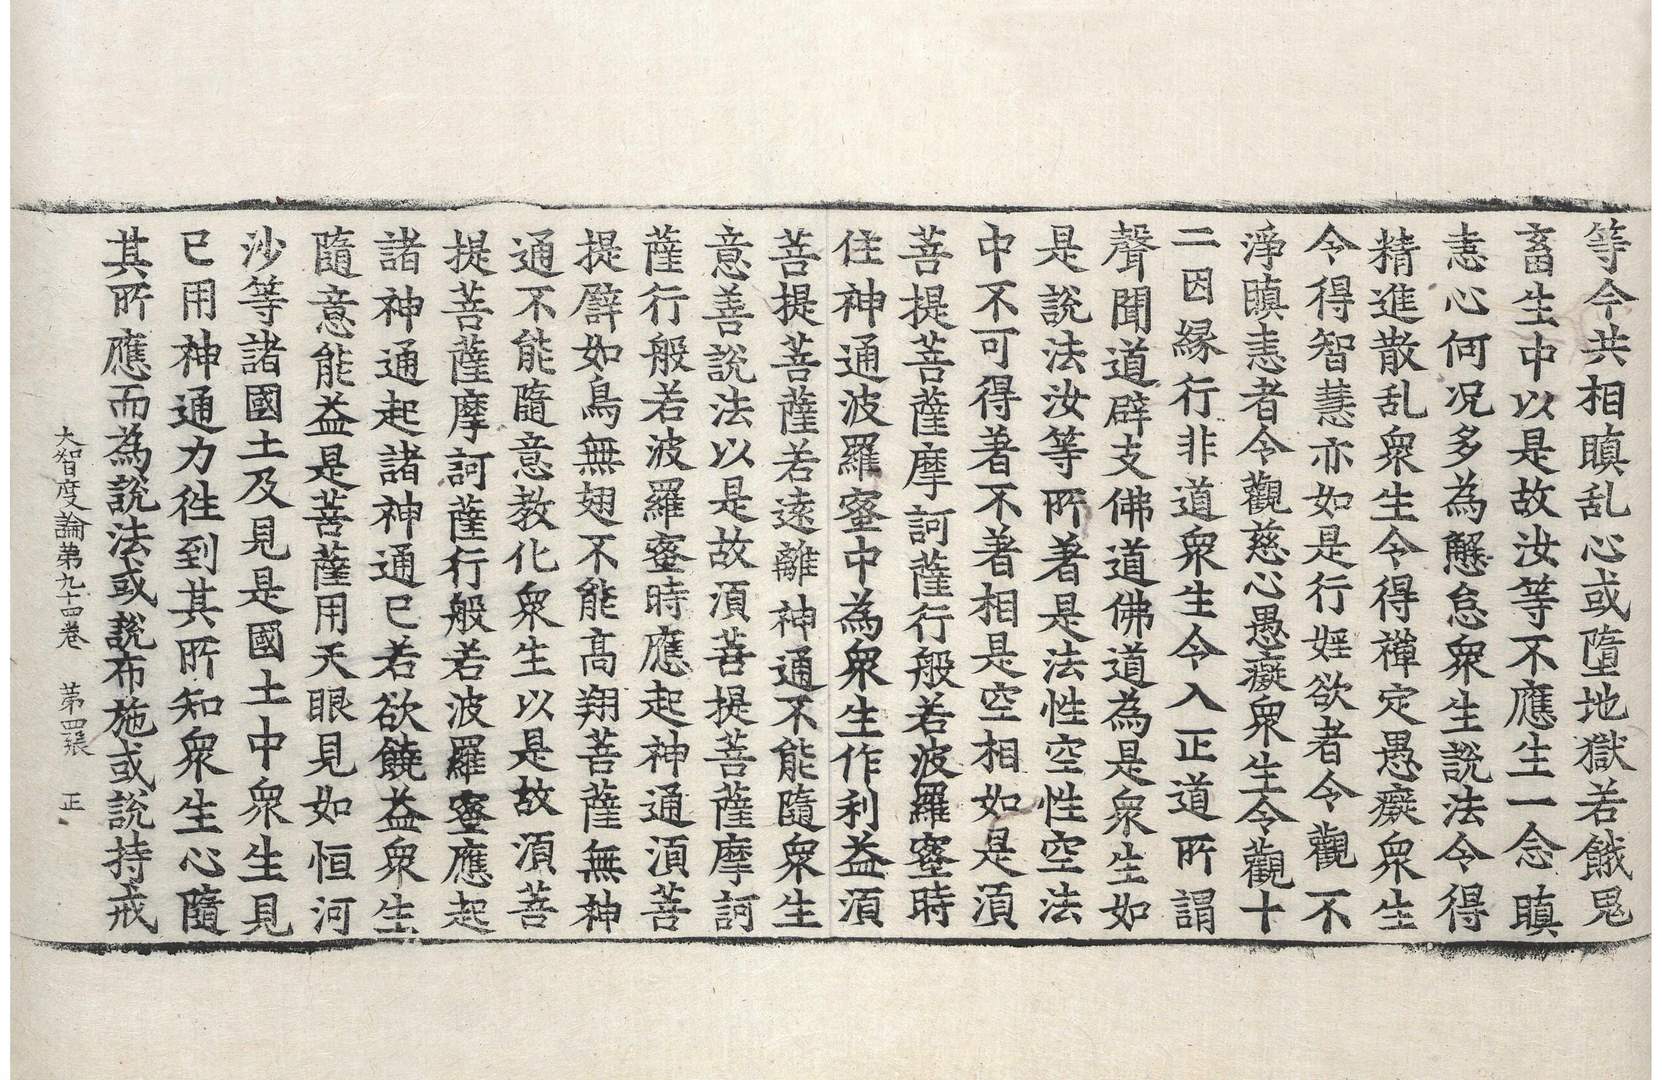 等今共相瞋乱心或墮地獄若餓鬼
畜生中以是故汝等不應生一念瞋
恚心何况多為懈怠衆生說法令得
精進散乱衆生令得禪定愚癡衆生
令得智慧亦如是行婬欲者令觀不
淨瞋恚者令觀慈心愚癡衆生令觀十
二因縁行非道衆生令入正道所謂
聲聞道辟支佛道佛道為是衆生如
是說法汝等所著是法性空性空法
中不可得著不著相是空相如是湏
菩提菩薩摩訶薩行般若波羅蜜時
住神通波羅蜜中為衆生作利益湏
菩提菩薩若遠離神通不能隨衆生
意善說法以是故湏菩提菩薩摩訶
薩行般若波羅蜜時應起神通湏菩
提譬如鳥無翅不能高翔菩薩無神
通不能隨意教化衆生以是故湏菩
提菩薩摩訶薩行般若波羅蜜應起
諸神通起諸神通已若欲饒益衆生
隨意能益是菩薩用天眼見如恒河
沙等諸國土及見是國土中衆生見
已用神通力徃到其所知衆生心隨
其所應而為說法或說布施或說持戒
大智度論第九十四卷 第四張 正